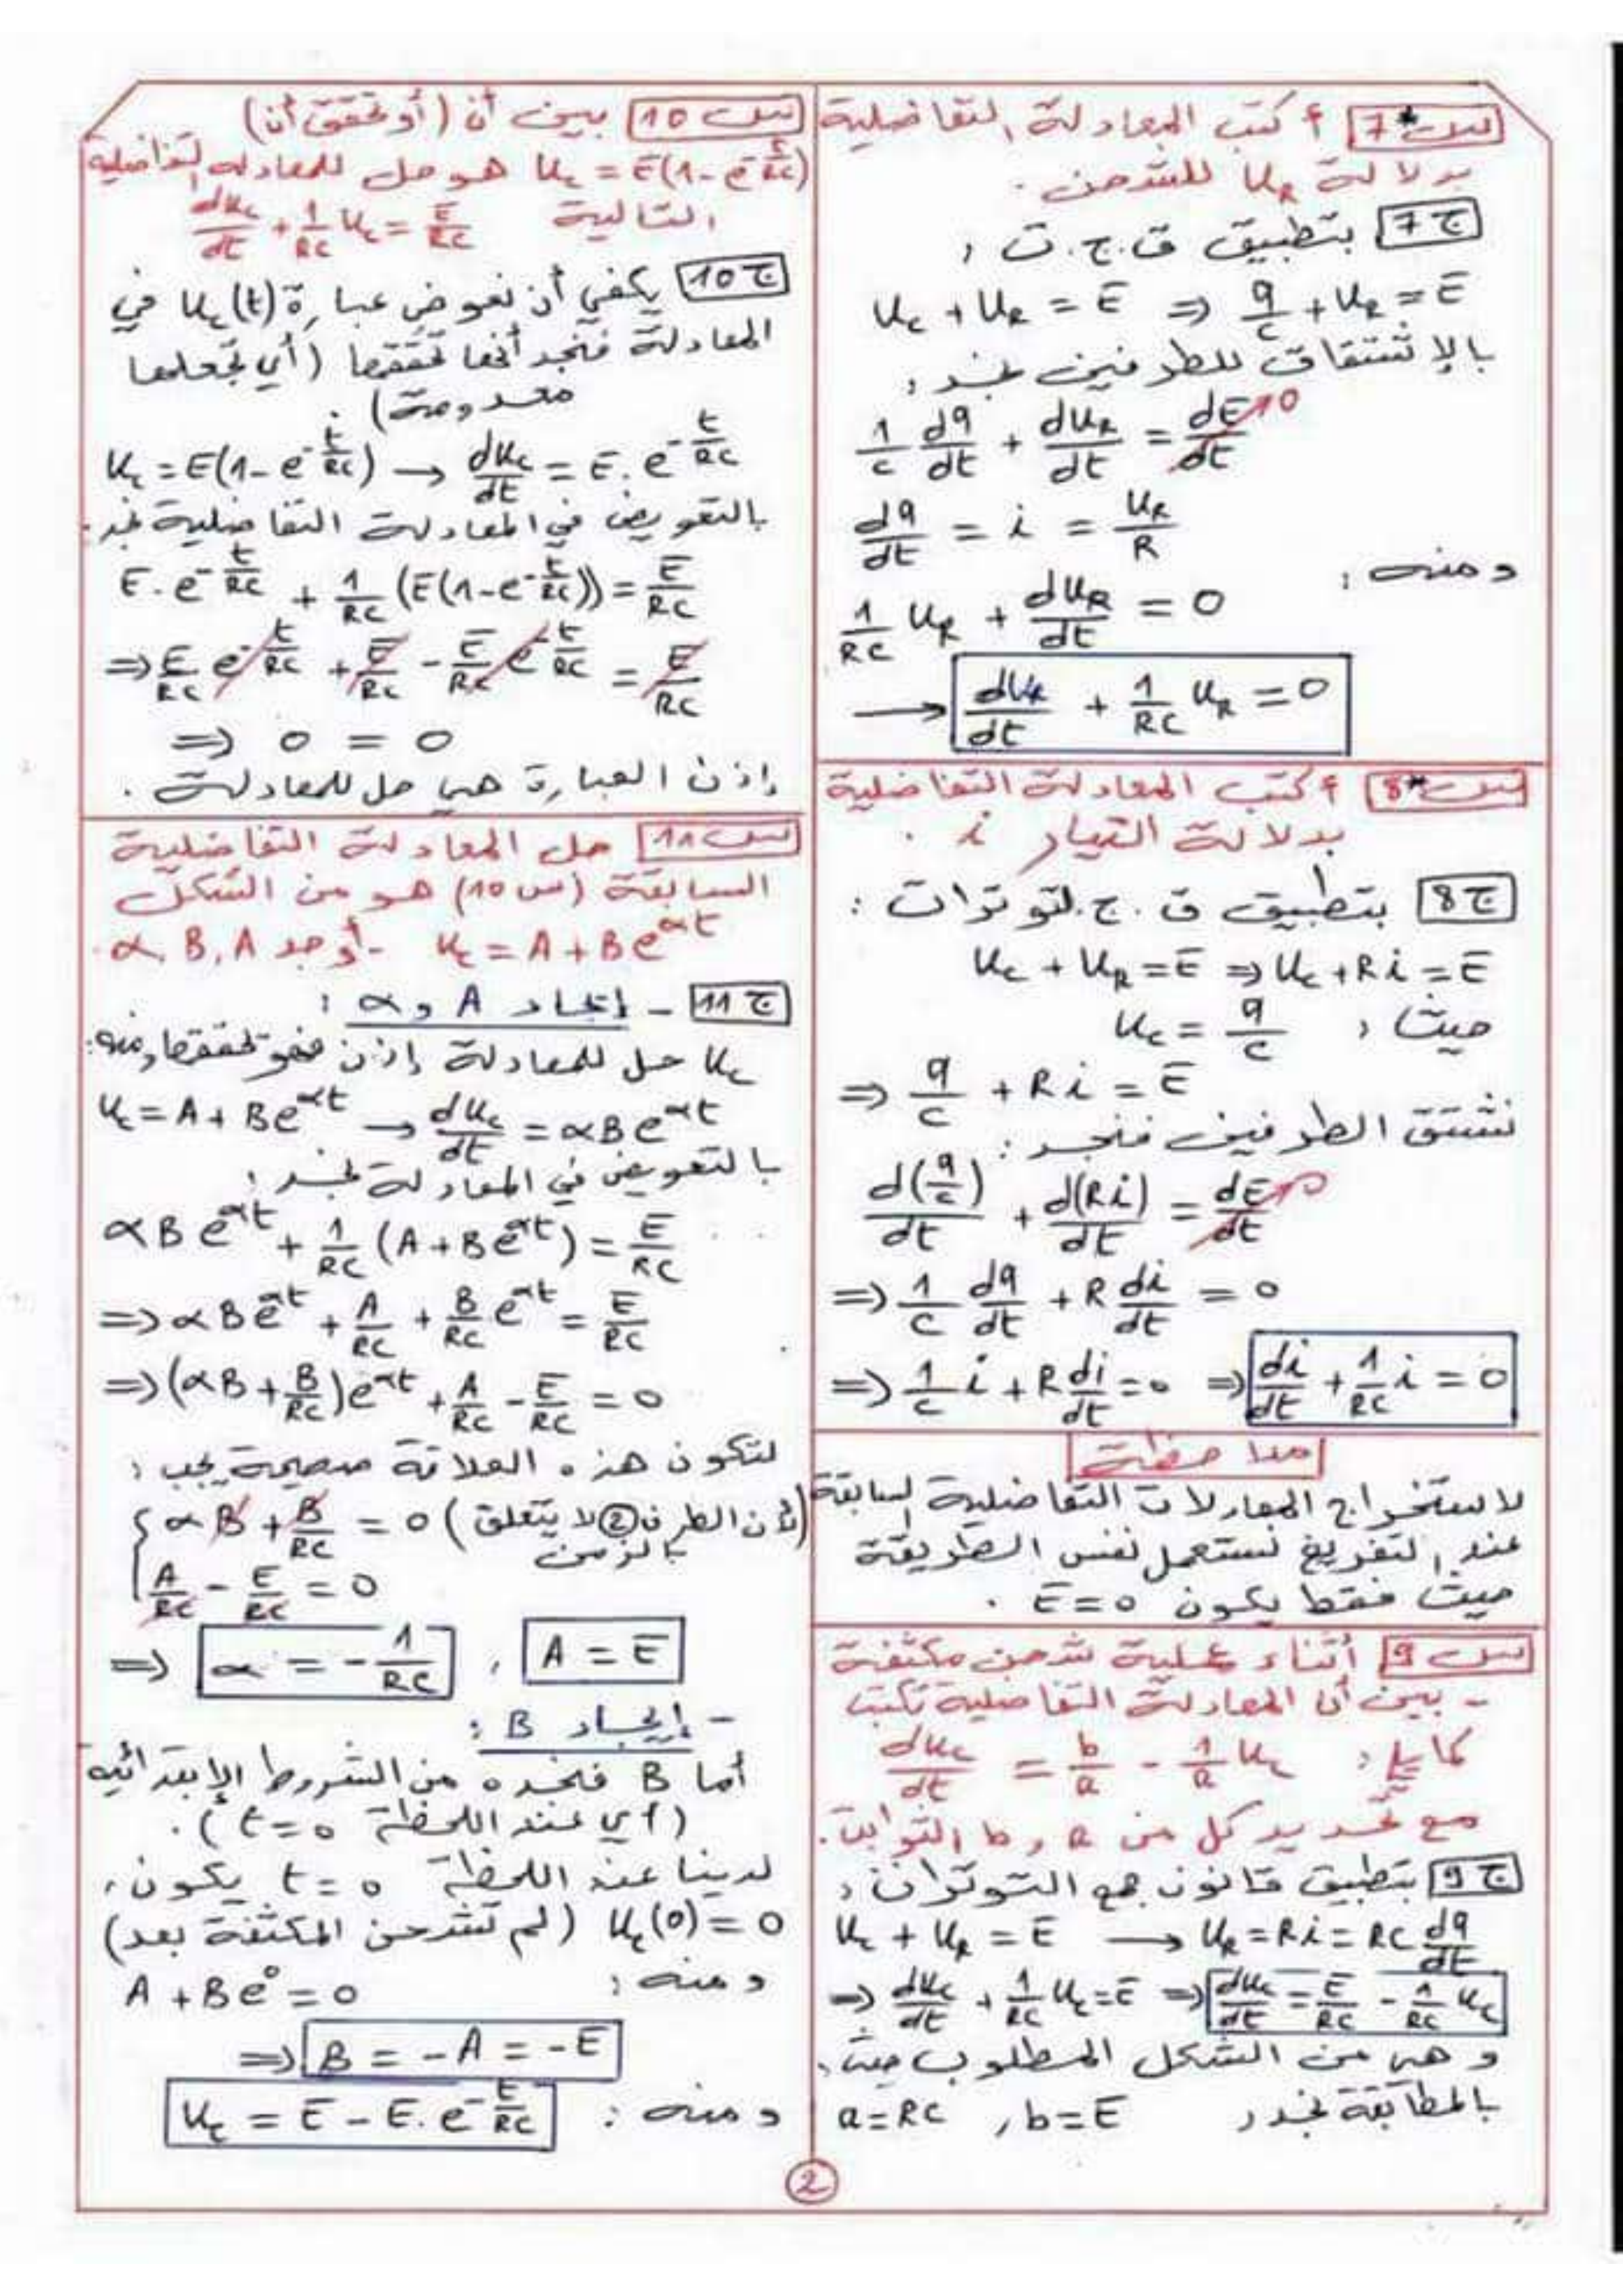 س7* أكتب المعادلة التفاضلية
بدلالة U_R للشحن.
ج7 بتطبيق ق.ج.ت:
U_C + U_R = E ⇒ q/C + U_R = E
بالإشتقاق للطرفين نجد:
1/C dq/dt + dU_R/dt = dE/dt → 0
dq/dt = i = U_R/R
ومنه:
1/RC U_R + dU_R/dt = 0
→ dU_R/dt + 1/RC U_R = 0
س8* أكتب المعادلة التفاضلية
بدلالة التيار i.
ج8 بتطبيق ق.ج.لتوترات:
U_C + U_R = E ⇒ U_C + Ri = E
حيث: U_C = q/C
⇒ q/C + Ri = E
نشتق الطرفين فنجد:
d(q/C)/dt + d(Ri)/dt = dE/dt → 0
⇒ 1/C dq/dt + R di/dt = 0
⇒ 1/C i + R di/dt = 0 ⇒ di/dt + 1/RC i = 0
ملاحظة
لاستخراج المعادلات التفاضلية السابقة
عند التفريغ نستعمل نفس الطريقة
حيث فقط يكون E = 0.
س9 أثناء عملية شحن مكثفة
- بين أن المعادلة التفاضلية تكتب
كما يلي: dU_C/dt = b/a - 1/a U_C
مع تحديد كل من a و b الثوابت.
ج9 بتطبيق قانون جمع التوترات:
U_C + U_R = E → U_R = Ri = RC dq/dt
⇒ dU_C/dt + 1/RC U_C = E ⇒ dU_C/dt = E/RC - 1/RC U_C
وهي من الشكل المطلوب حيث
بالمطابقة نجد: a = RC , b = E
س10 بين أن (أو تحقق أن)
U_C = E(1 - e^(-t/RC)) هو حل للمعادلة التفاضلية
التالية dU_C/dt + 1/RC U_C = E/RC
ج10 يكفي أن نعوض عبارة U_C(t) في
المعادلة فنجد أنها تحققها (أي تجعلها
معدومة).
U_C = E(1 - e^(-t/RC)) → dU_C/dt = E . e^(-t/RC)
بالتعويض في المعادلة التفاضلية نجد:
E . e^(-t/RC) + 1/RC (E(1 - e^(-t/RC))) = E/RC
⇒ E/RC e^(-t/RC) + E/RC - E/RC e^(-t/RC) = E/RC
⇒ 0 = 0
إذن العبارة هي حل للمعادلة.
س11 حل المعادلة التفاضلية
السابقة (س10) هو من الشكل
U_C = A + Be^(αt) - أوجد α, B, A
ج11 - إيجاد A و α:
U_C حل للمعادلة إذن فهو تحققها ومنه:
U_C = A + Be^(αt) → dU_C/dt = αBe^(αt)
بالتعويض في المعادلة نجد:
αBe^(αt) + 1/RC (A + Be^(αt)) = E/RC
⇒ αBe^(αt) + A/RC + B/RC e^(αt) = E/RC
⇒ (αB + B/RC)e^(αt) + A/RC - E/RC = 0
لتكون هذه العلاقة صحيحة يجب:
αB + B/RC = 0 (لأن الطرف ② لا يتعلق
بالزمن)
A/RC - E/RC = 0
⇒ α = -1/RC , A = E
- إيجاد B:
أما B فنجده من الشروط الإبتدائية
(أي عند اللحظة t = 0).
لدينا عند اللحظة t = 0 يكون:
U_C(0) = 0 (لم تشحن المكثفة بعد)
ومنه: A + Be^0 = 0
⇒ B = -A = -E
ومنه: U_C = E - E . e^(-t/RC)
2